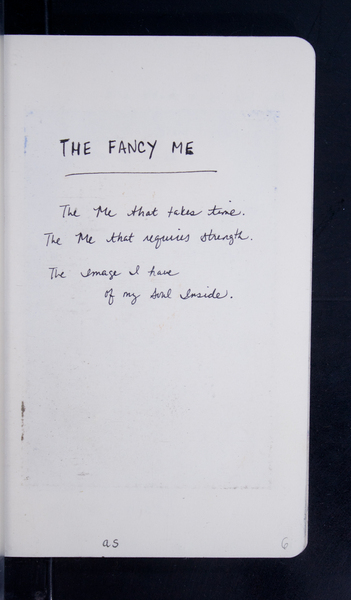 THE FANCY ME
The Me that takes time.
The Me that requires strength.
The Image I have
of my Soul Inside.
as
6